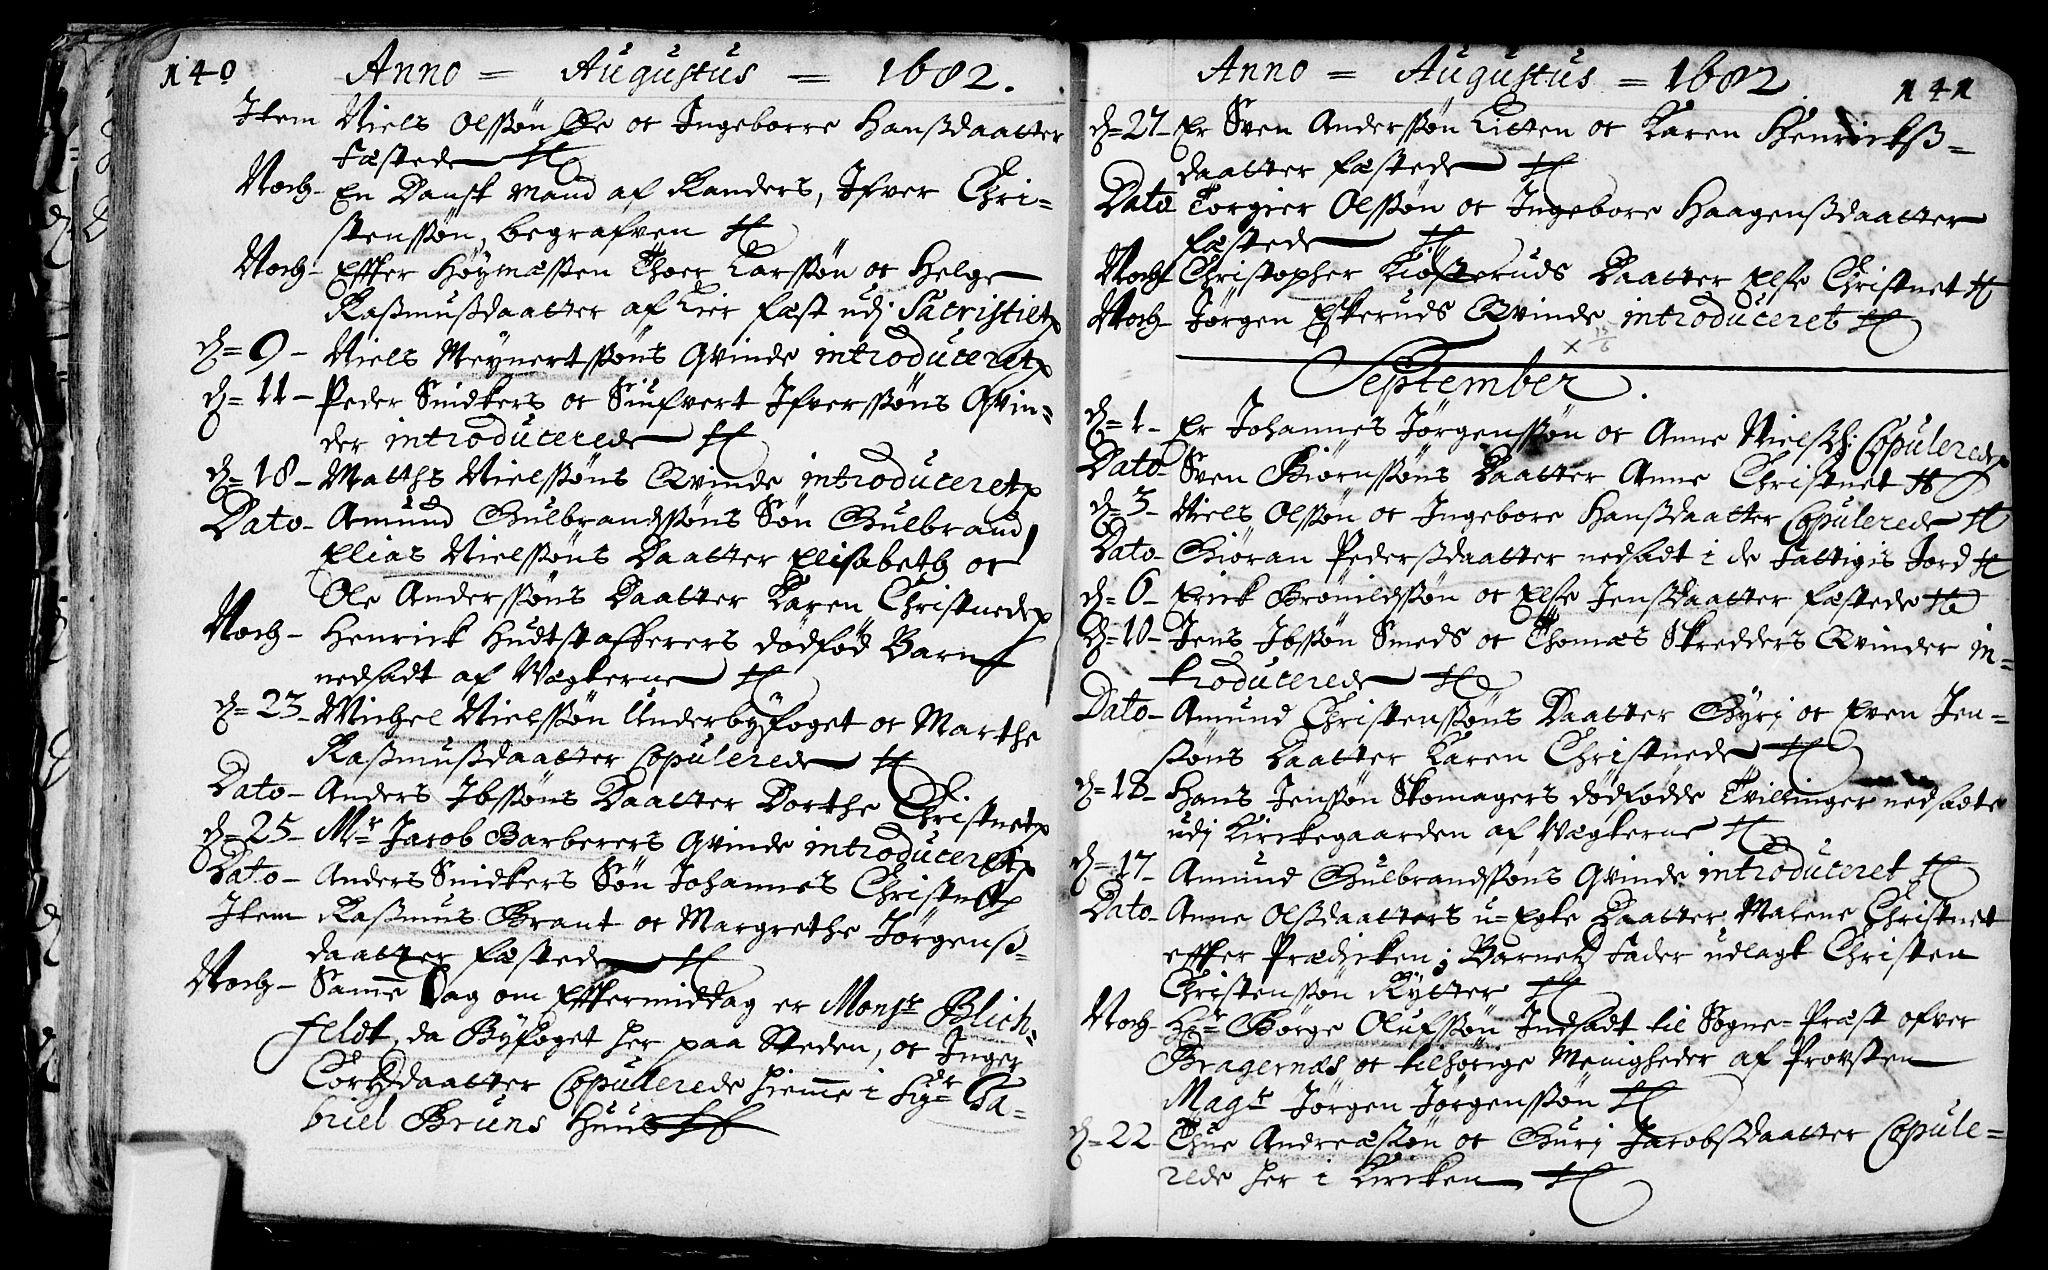 140 Anno = Augustus = 1682.
Item Niels Olssøn Øe oc Ingeborre Hanssdaatter
fæstede
Noch - En Dansk Mand af Randers, Ifver Chri=
stenssøn, begrafven
Noch - Effter Høymæssen Thoer Larssøn oc Helge
Rassmussdaatter af Lier fæst udj Sacristiet
d= 9 - Niels Meynertssøns Qvinde introduceret
d= 11 - Peder Snidkers oc Siufvert Ifverssøns Qvin=
der introducerede
d= 18 - Matths Nielssøns Qvinde introduceret
Dato - Amund Gulbrandssøns Søn Gulbrand
Elias Nielssøns Daatter Elisabeth oc
Ole Anderssøns Daatter Karen Christnede
Noch - Henrick Hudtstafferers dødfød Barn
nedsadt af Vægterne
d= 23 - Michel Nielssøn Underbyfoget oc Marthe
Rassmussdaatter Copulerede
Dato - Anders Ibssøns Daatter Dorthe Christnet
d= 25 - Mr Jacob Barberers Qvinde introduceret
Dato - Anders Snidkers Søn Johannes Christnet
Item Rassmus Brant oc Margrethe Jørgenss=
daatter fæstede
Noch - Samme Dag om Efftermiddag er Monsr Blich=
feldt, da Byfoget her paa Steden, oc Inger
daatter Copulerede hiemme i Sigr Ga=
briel Bruns Huus
Anno = Augustus = 1682 141
d= 27 - Er Sven Anderssøn Litten oc Karen Henrickss=
daatter fæstede
Dato Torgier Olssøn oc Ingebore Haagenssdaatter
fæstede
Noch Christopher Kiøsteruds Daatter Else Christnet
Noch - Jørgen Eskeruds Qvinde introduceret
September.
d= 1 - Er Johannes Jørgenssøn oc Anne Nielssd: Copulerede
Dato - Sven Biørnssøns Daatter Anne Christnet
d= 3 - Niels Olssøn oc Ingebore Hanssdaatter Copulerede
Dato - Giøran Pederssdaatter nedsadt i de Fattigis Jord
d= 6 - Erick Brønildssøn oc Else Jenssdaatter fæstede
d= 10 - Jens Ibssøn Smeds oc Thomæs Skredders Qvinder in=
troducerede
Dato - Amund Christenssøns Daatter Gyrj oc Even Jen=
ssøns Daatter Karen Christnede
d= 18 - Hans Jenssøn Skomagers dødfødde Tvillinger nedsadte
udj Kirckegaarden af Vægterne
d= 17 - Amund Gulbrandssøns Qvinde introduceret
Dato - Anne Olssdaatters u=Egte Daatter Malene Christnet
effter Prædicken; Barnets Fader udlagt Christen
Christenssøn Rytter
Noch - Hr Børge Olufssøn Indsadt til Sogne=Præst ofver
Bragernæs oc tilhørige Menigheder af Provsten
Magr Jørgen Jørgenssøn
d= 22 - Thue Andreæssøn oc Gurj Jacobssdaatter Copule=
rede her i Kircken